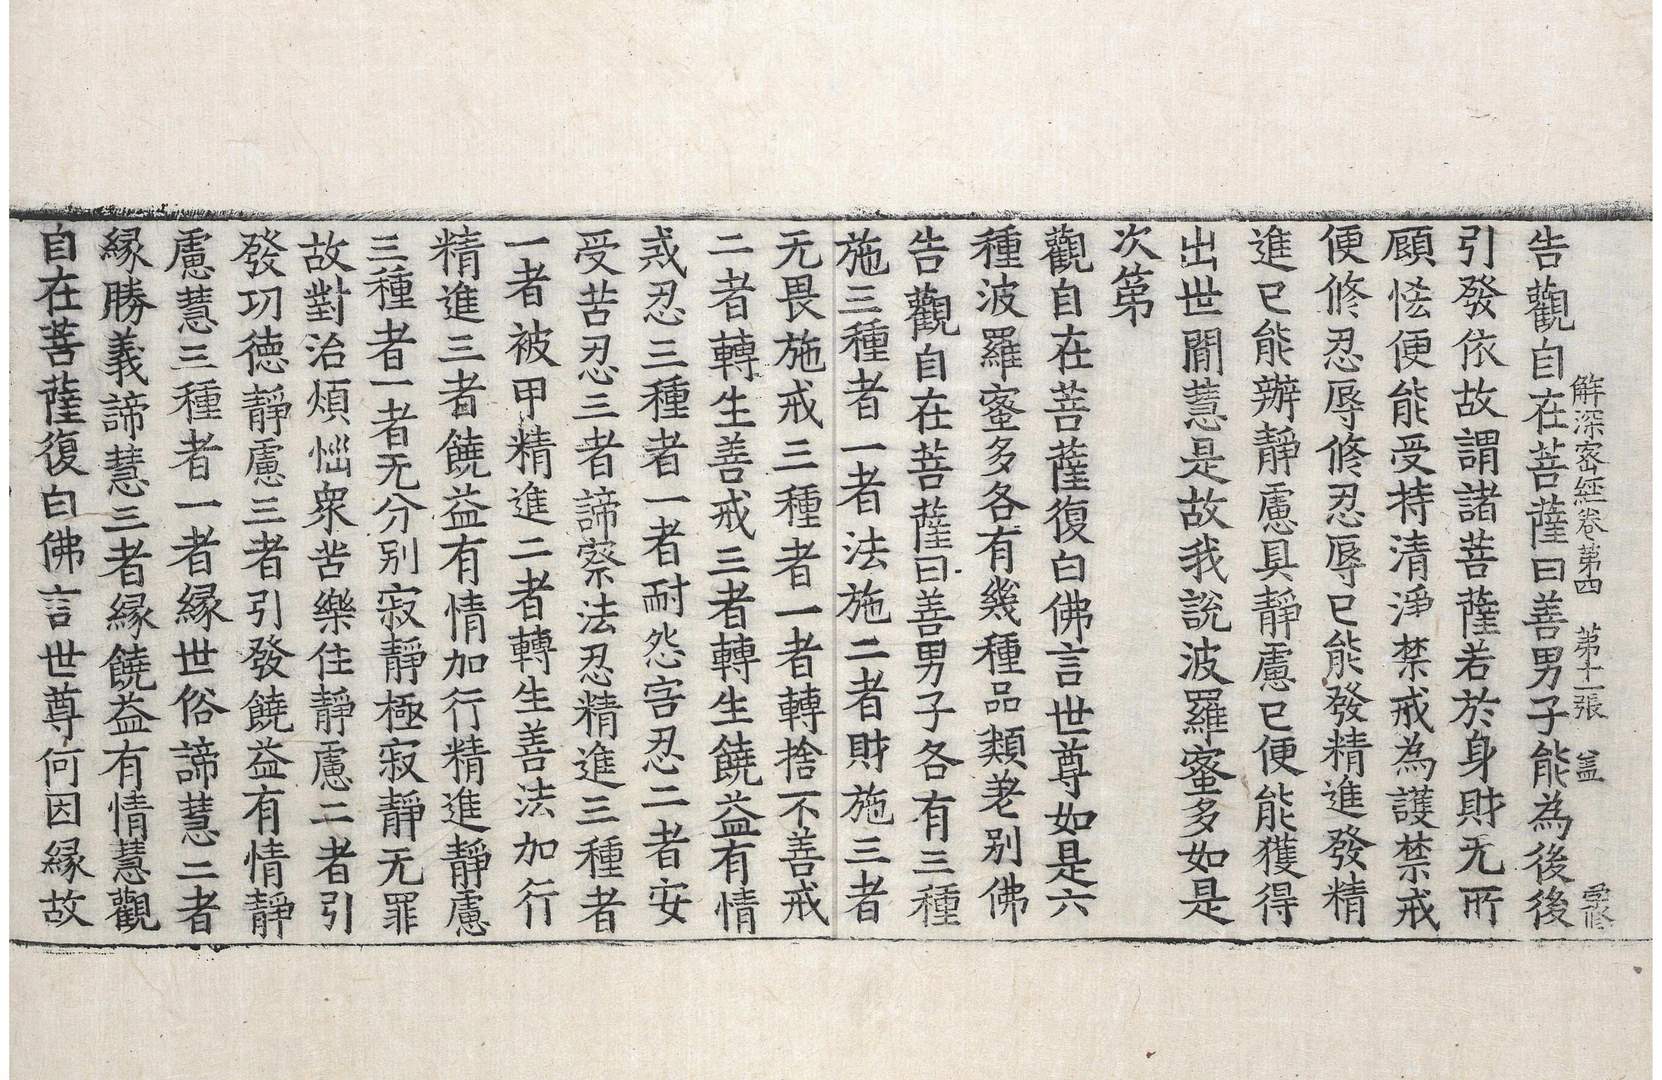 解深密經卷第四　第十一張　盖
告觀自在菩薩曰善男子能為後後
引發依故謂諸菩薩若於身財无所
顧悋便能受持清淨禁戒為護禁戒
便修忍辱修忍辱已能發精進發精
進已能辦靜慮具靜慮已便能獲得
出世間慧是故我說波羅蜜多如是
次第
觀自在菩薩復白佛言世尊如是六
種波羅蜜多各有幾種品類差別佛
告觀自在菩薩曰善男子各有三種
施三種者一者法施二者財施三者
无畏施戒三種者一者轉捨不善戒
二者轉生善戒三者轉生饒益有情
戒忍三種者一者耐怨害忍二者安
受苦忍三者諦察法忍精進三種者
一者被甲精進二者轉生善法加行
精進三者饒益有情加行精進靜慮
三種者一者无分別寂靜極寂靜无罪
故對治煩惱衆苦樂住靜慮二者引
發功德靜慮三者引發饒益有情靜
慮慧三種者一者緣世俗諦慧二者
緣勝義諦慧三者緣饒益有情慧觀
自在菩薩復白佛言世尊何因緣故